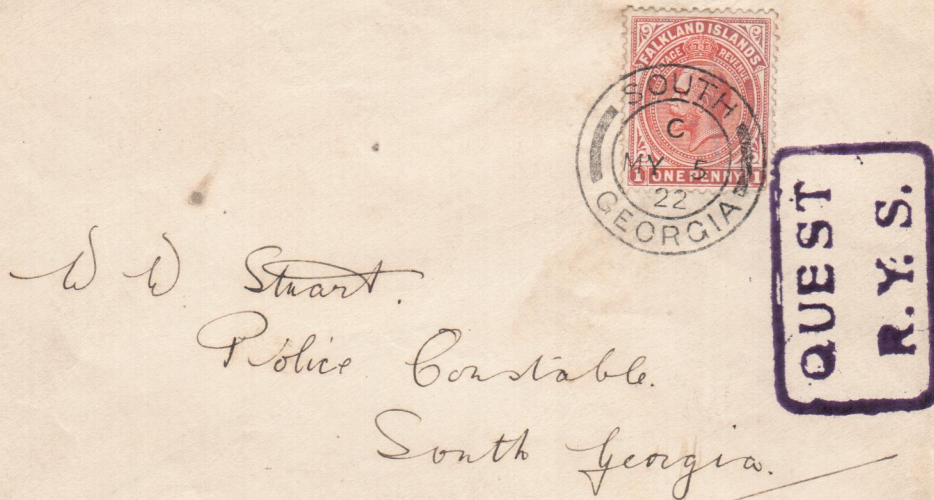 FALKLAND ISLANDS
POSTAGE REVENUE
1 ONE PENNY 1
SOUTH
C
MY 5
22
GEORGIA
QUEST
R.Y.S.
W W Stuart.
Police Constable.
South Georgia.